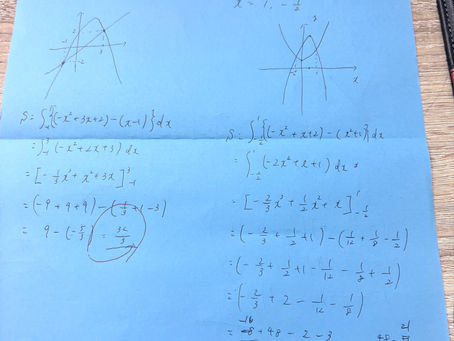 x = 1, -1/2
S = ∫₋₁³ {(-x²+3x+2)-(x-1)} dx
= ∫₋₁³ (-x²+2x+3) dx
= [-1/3x³+x²+3x]³₋₁
= (-9+9+9)-(1/3+1-3)
= 9-(-5/3) = 32/3
S = ∫¹₋₁/₂ {(-x²+x+2)-(x²+1)} dx
= ∫¹₋₁/₂ (-2x²+x+1) dx
= [-2/3x³+1/2x²+x]¹₋₁/₂
= (-2/3+1/2+1)-(1/12+1/8-1/2)
= (-2/3+1/2+1-1/12-1/8+1/2)
= (-2/3+2-1/12-1/8)
-16
+48-2-3